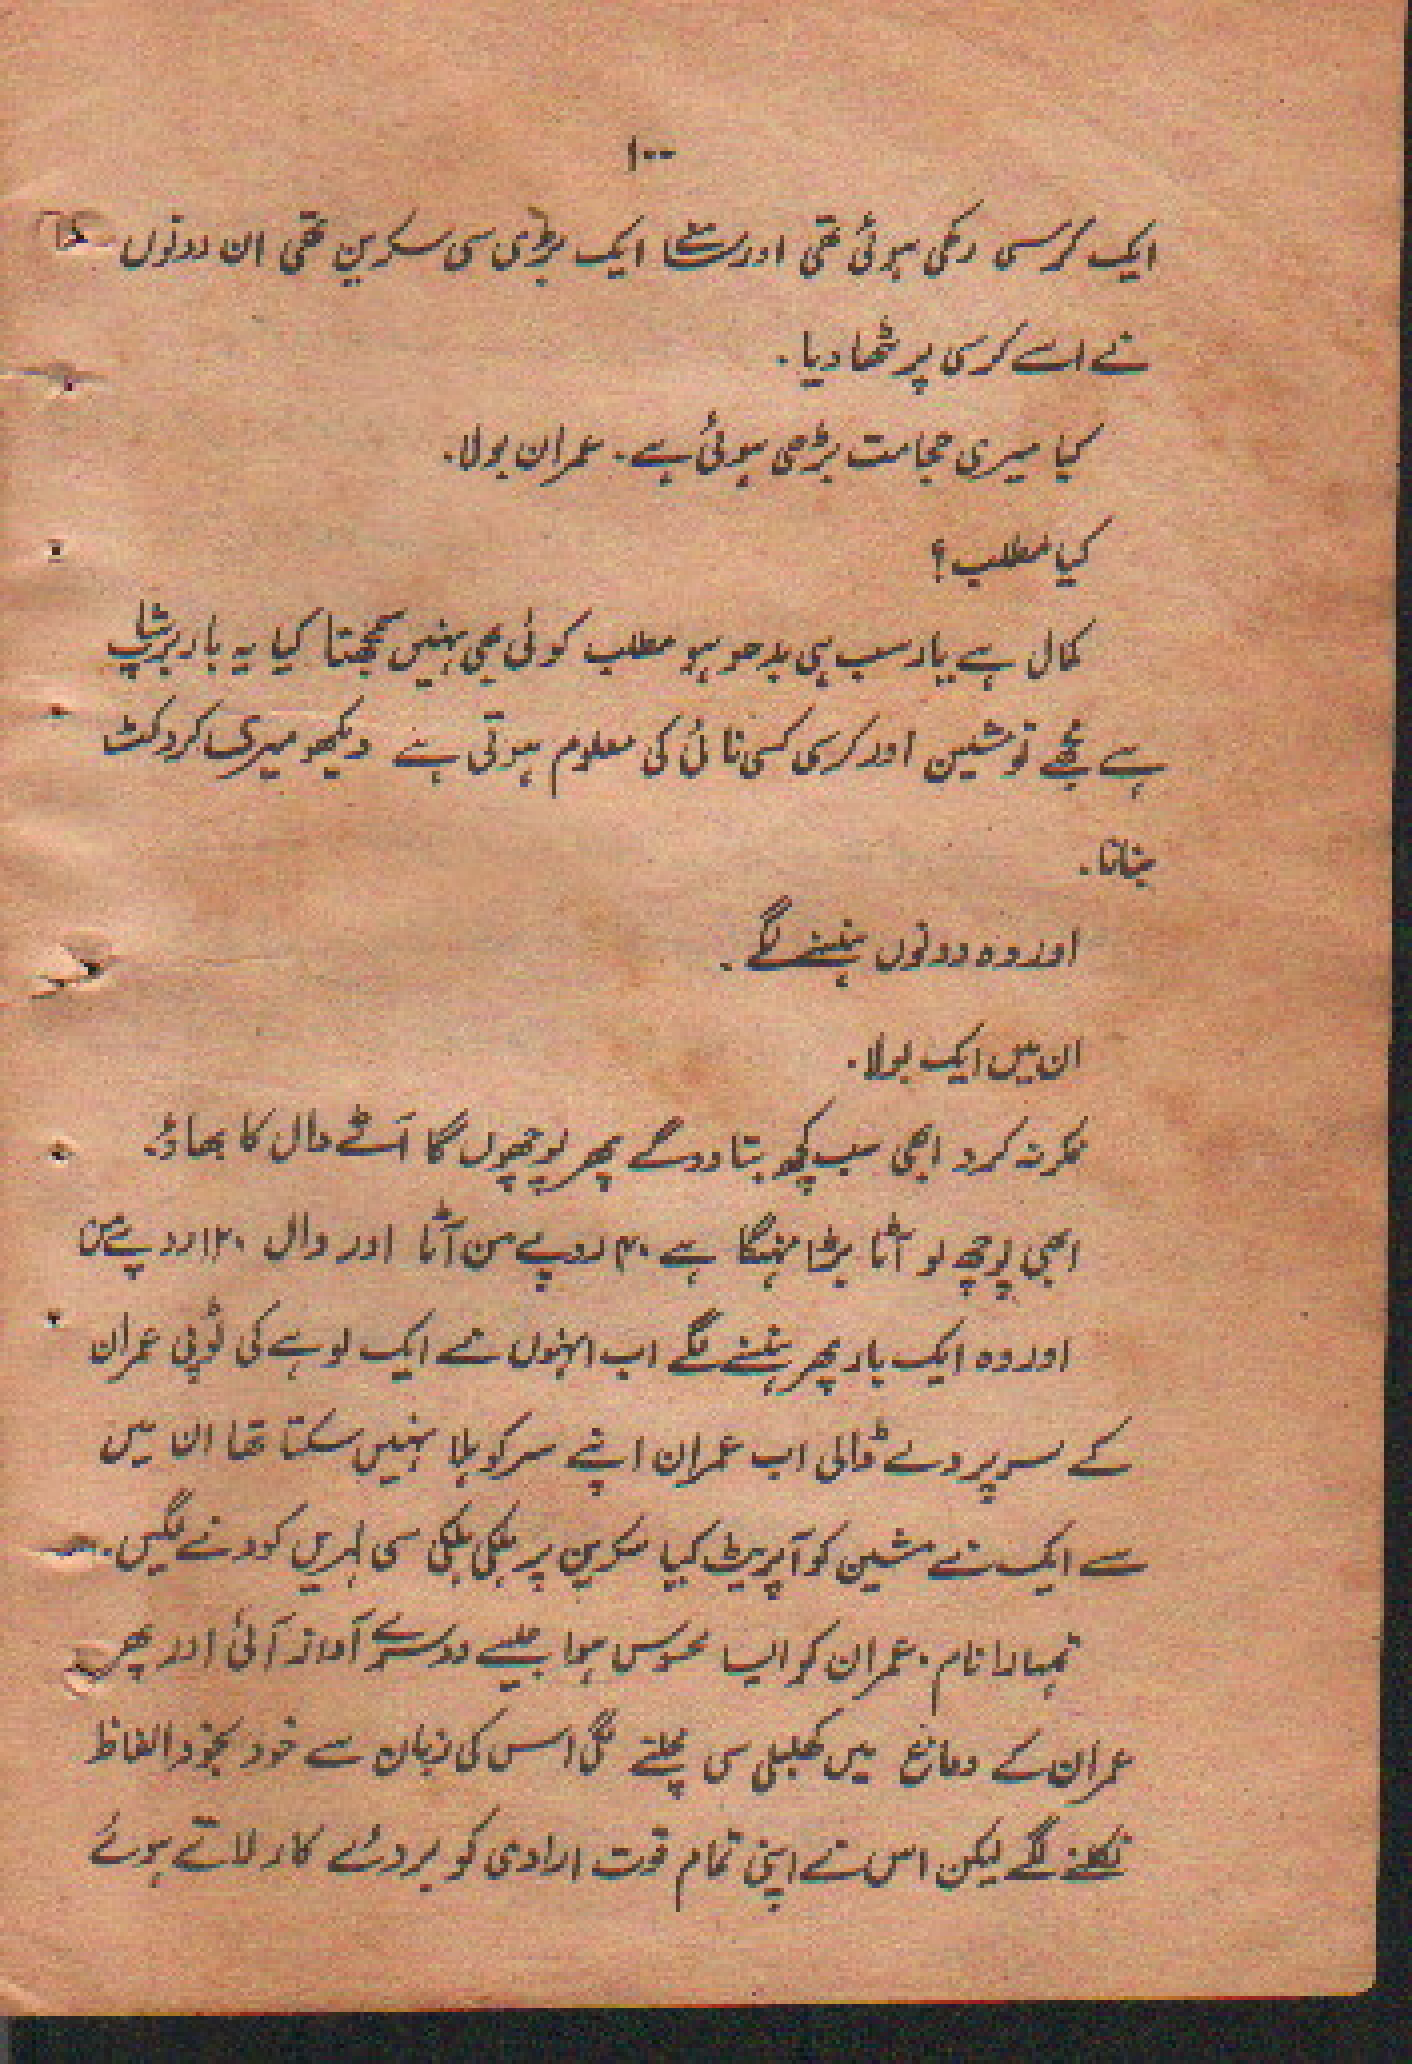 ۱۰۰
ایک کرسی رکھی ہوئی تھی اور سامنے ایک بڑی سی سکرین تھی ان دونوں
نے اسے کرسی پر بٹھا دیا.
کیا میری حجامت بڑھی ہوئی ہے. عمران بولا.
کیا مطلب؟
کمال ہے یار سب ہی بدھو ہو مطلب کوئی بھی نہیں سمجھتا کیا یہ باربرشاپ
ہے مجھے تو مشین اور کرسی کسی نائی کی معلوم ہوتی ہے دیکھو میری کردکٹ
بنانا.
اور وہ دونوں ہنسنے لگے.
ان میں ایک بولا.
فکر نہ کرو ابھی سب کچھ بتا دو گے پھر پوچھوں گا آٹے دال کا بھاؤ.
ابھی پوچھ لو آٹا بڑا مہنگا ہے ۴۰ روپے من آٹا اور دال ۱۲۰ روپے من
اور وہ ایک بار پھر ہنسنے لگے اب انہوں نے ایک لوہے کی ٹوپی عمران
کے سر پر دے ڈالی اب عمران اپنے سر کو ہلا نہیں سکتا تھا ان میں
سے ایک نے مشین کو آپریٹ کیا سکرین پر ہلکی ہلکی سی لہریں کودنے لگیں.
تمہارا نام. عمران کو ایسا محسوس ہوا جیسے دور سے آواز آئی اور پھر
عمران کے دماغ میں کھلبلی سی مچنے لگی اس کی زبان سے خود بخود الفاظ
نکلنے لگے لیکن اس نے اپنی تمام قوت ارادی کو بروئے کار لاتے ہوئے